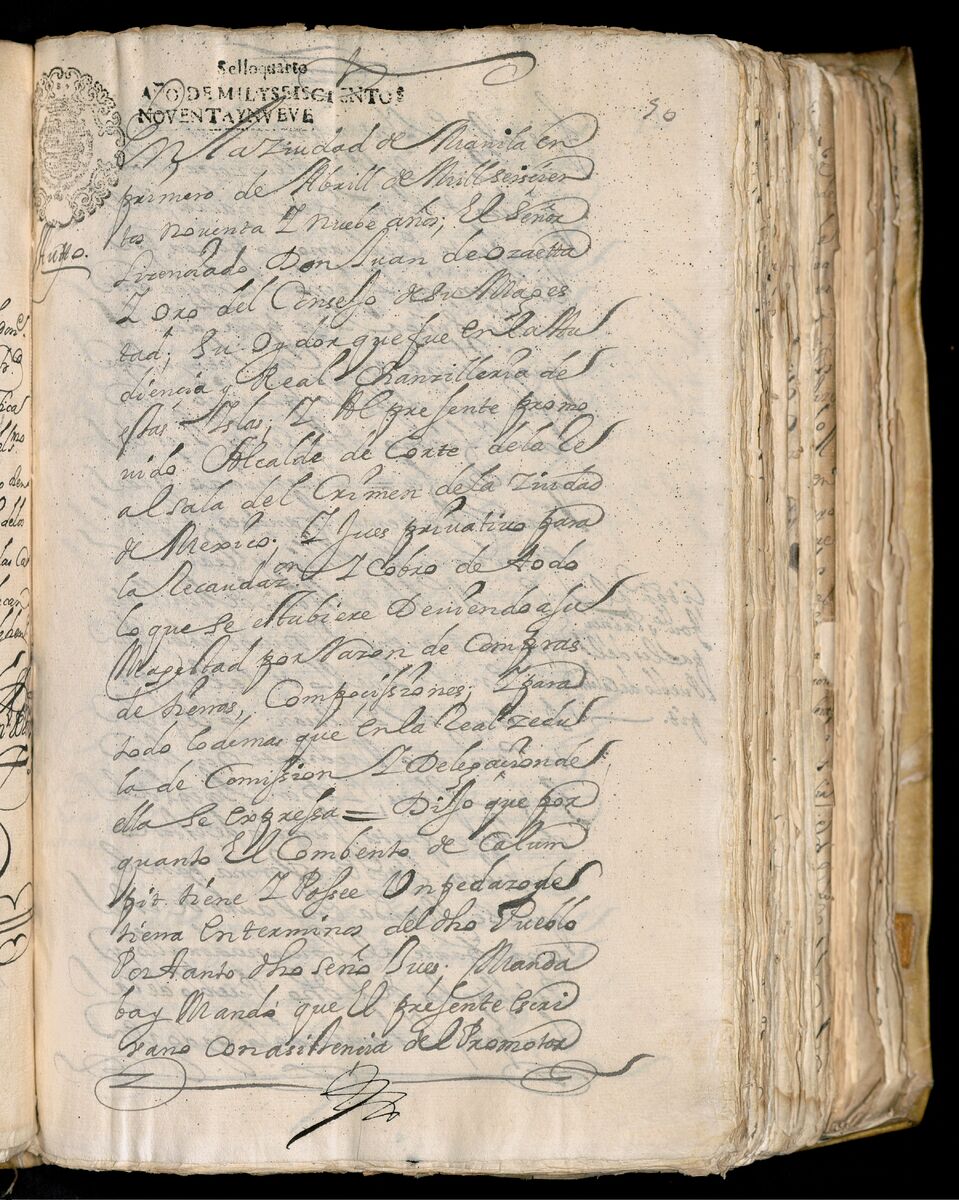 Selloquarto
AÑO DE MIL Y SEISCIENTOS
NOVENTA Y NVEVE
50
En la Ziudad de Manila en
primero de Abrill de Mill seiscien
tos noventa Y nuebe años; El Señor
Lizenciado Don Juan de Ozaetta
Y Oro del Consejo de Su Mages
tad, Su Oydor que fue en la Au
diencia y Real Chanzilleria de
estas Yslas, Y Al presente promo
uido Alcalde de Corte de la Re
al sala del Crimen de la Ziudad
de Mexico. Y Jues priuatiuo para
la Recaudazon Y Cobro de todo
lo que se estubiere Deuiendo a su
Magestad por Razon de Compras
de tierras, Compocissiones; Y para
todo lo demas que en la Real Zedu
la de Comission Y Delegacion de
ella se expressa = Dijo que por
quanto El Combento de Calum
pit tiene Y Possee Un pedazo de
tierra en terminos del dho Pueblo
Por tanto dho señor Jues; Manda
ba y Mandó que El presente escri
vano con asistencia del Promotor
Autto.